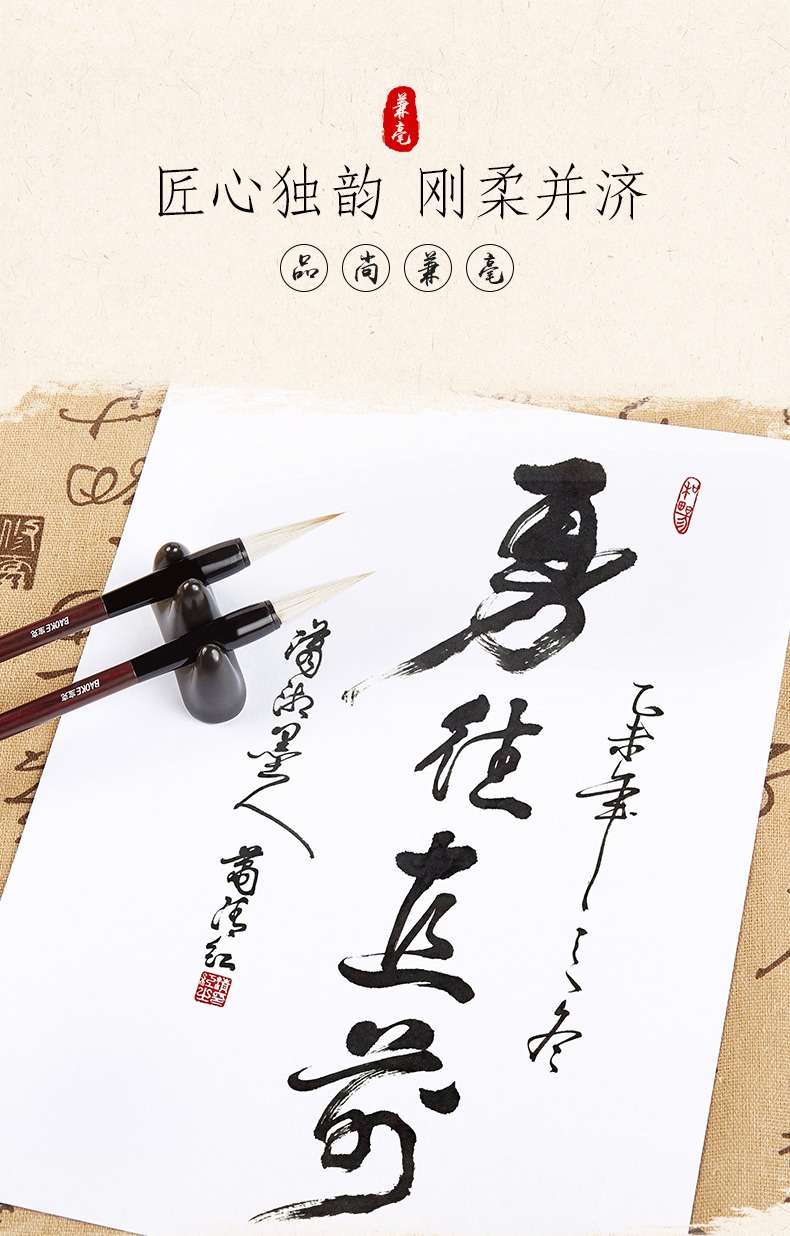 兼毫
匠心独韵 刚柔并济
品尚兼毫
勇往直前
乙未年之冬
潇湘墨人
蒋清红
BAOKE宝克
BAOKE宝克